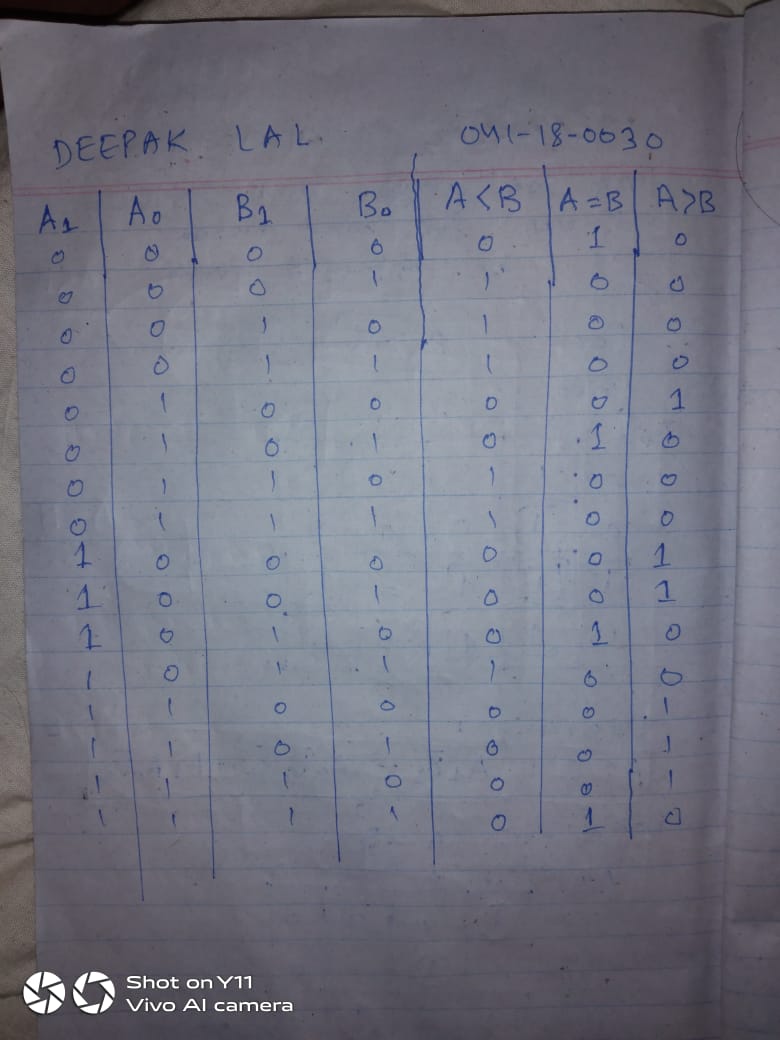 DEEPAK LAL 041-18-0030
A1 A0 B1 B0 A<B A=B A>B
0 0 0 0 0 1 0
0 0 0 1 1 0 0
0 0 1 0 1 0 0
0 0 1 1 1 0 0
0 1 0 0 0 0 1
0 1 0 1 0 1 0
0 1 1 0 1 0 0
0 1 1 1 1 0 0
1 0 0 0 0 0 1
1 0 0 1 0 0 1
1 0 1 0 0 1 0
1 0 1 1 1 0 0
1 1 0 0 0 0 1
1 1 0 1 0 0 1
1 1 1 0 0 0 1
1 1 1 1 0 1 0
Shot on Y11
Vivo AI camera